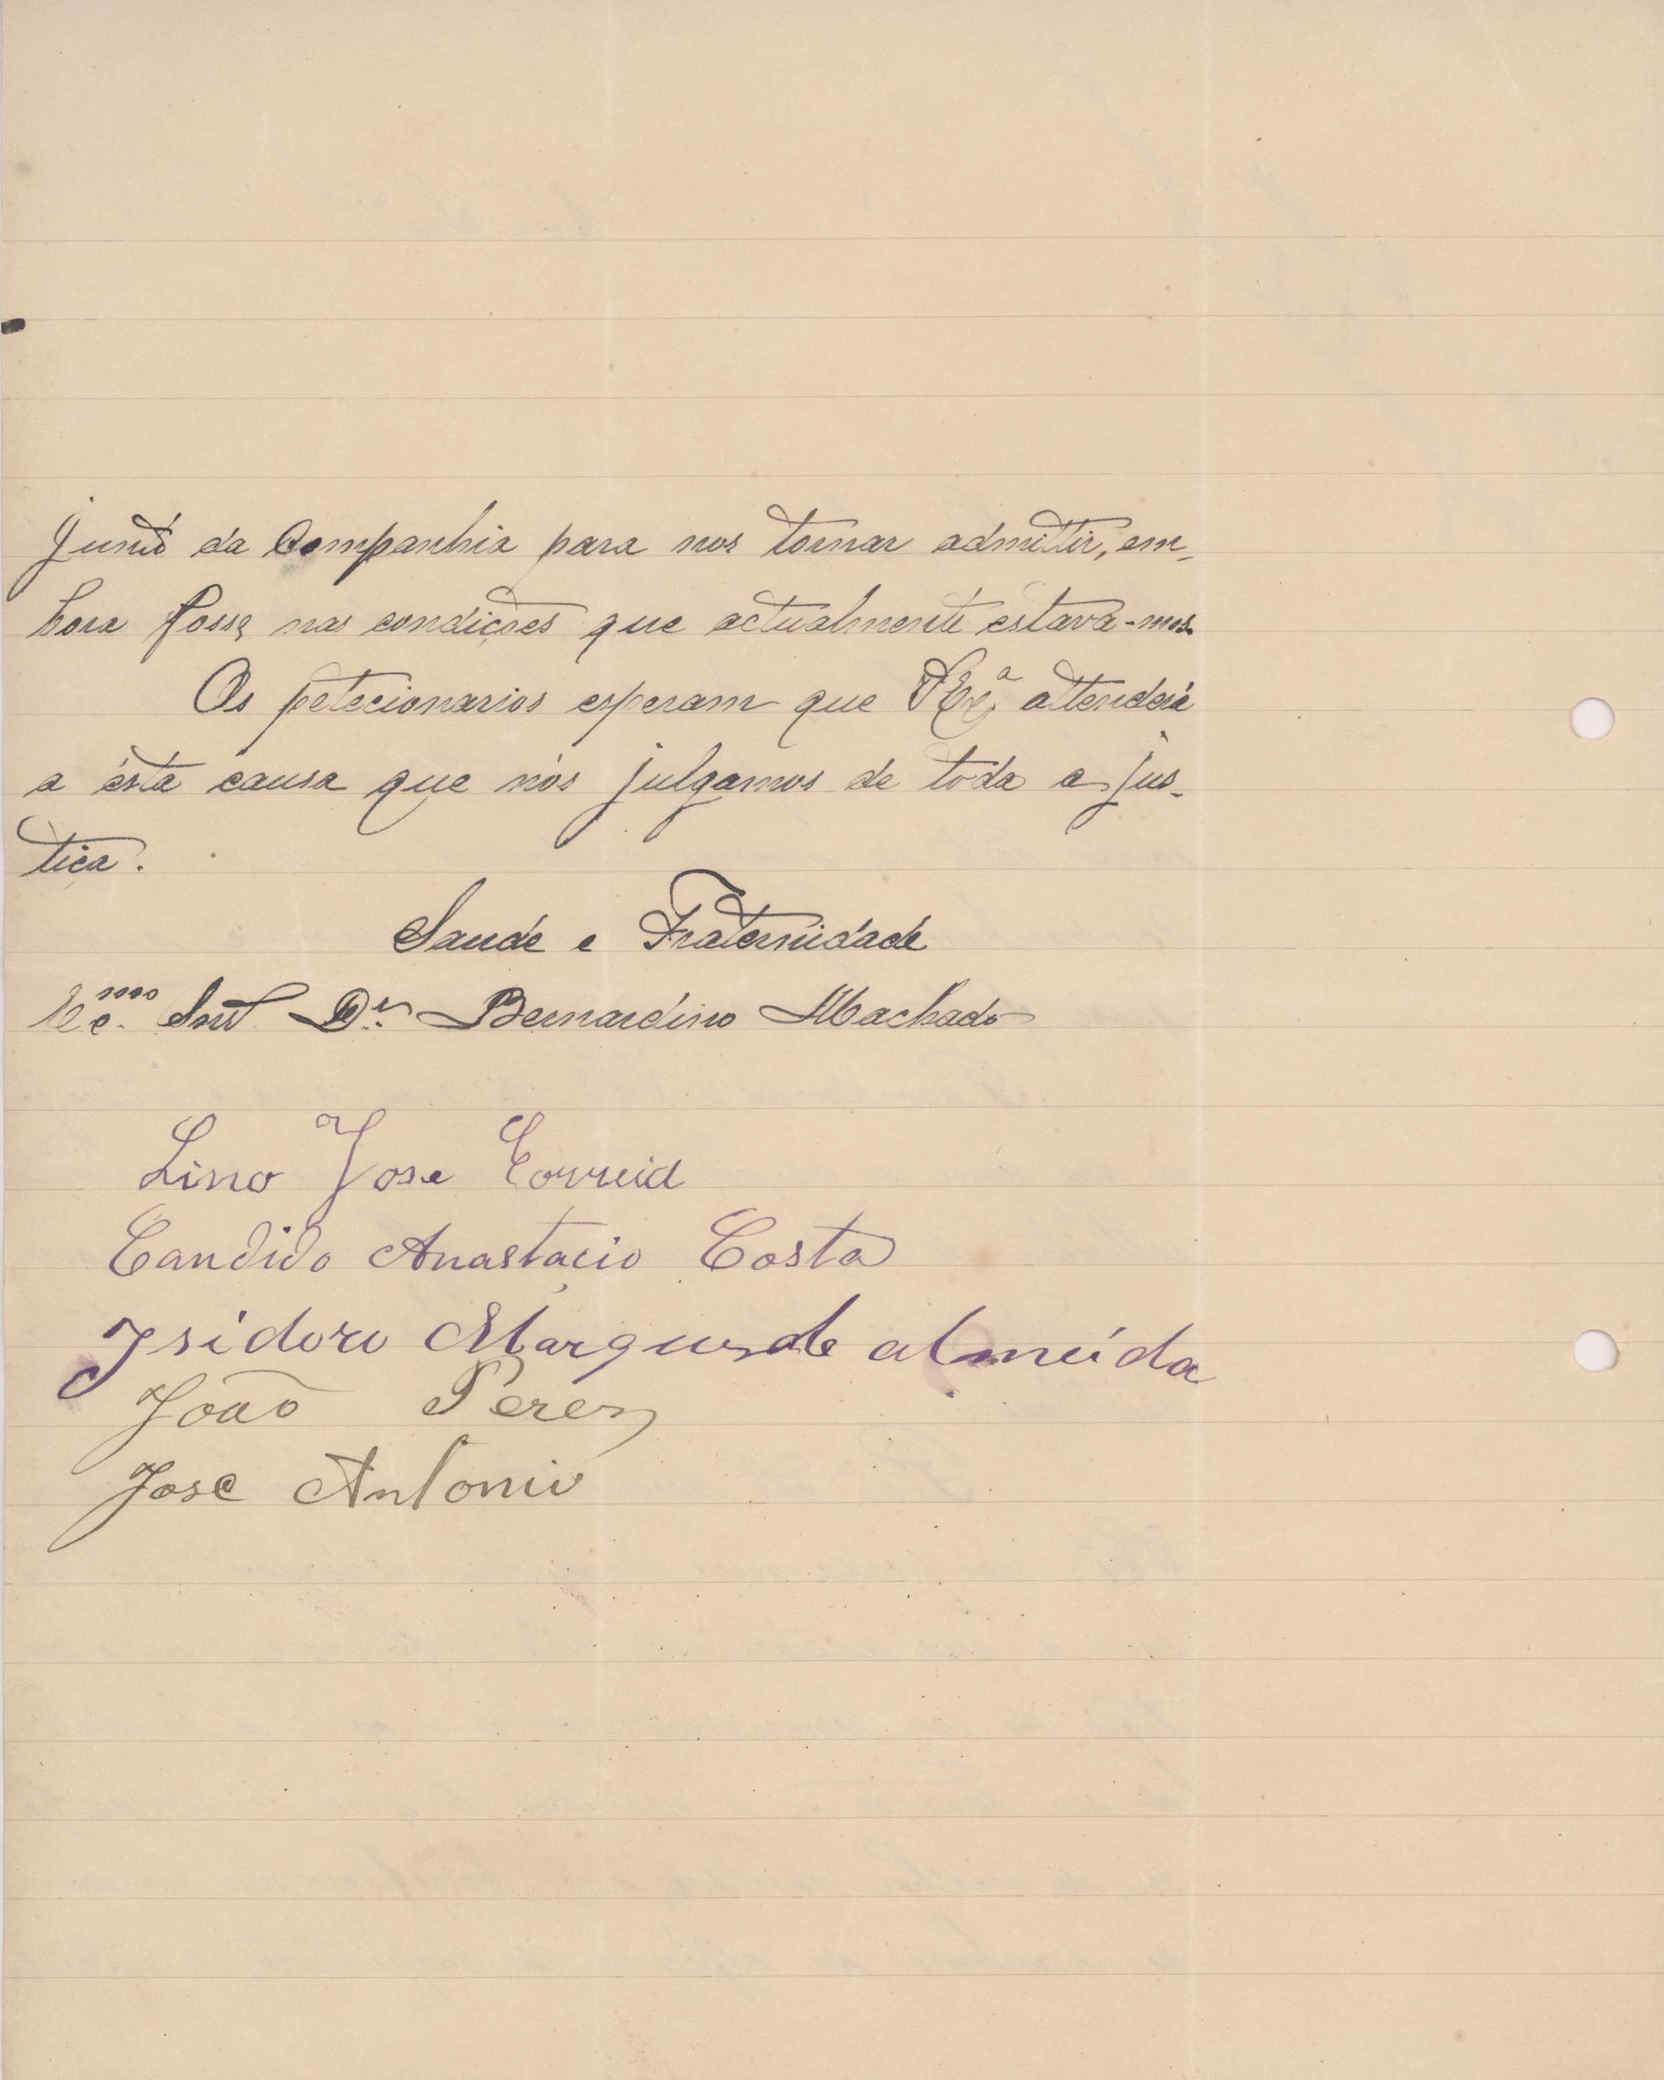 junto da Companhia para nos tornar admittir, em-
bora fosse nas condições que actualmente estava-mos.
Os petecionarios esperam que V Exª attenderá
a ésta causa que nós julgamos de toda a jus-
tiça.
Saude e Fraternidade
Snr Dr. Bernardino Machado
Lino Jose Correia
Candido Anastacio Costa
Isidoro Marques de almeida
João Peres
Jose Antonio